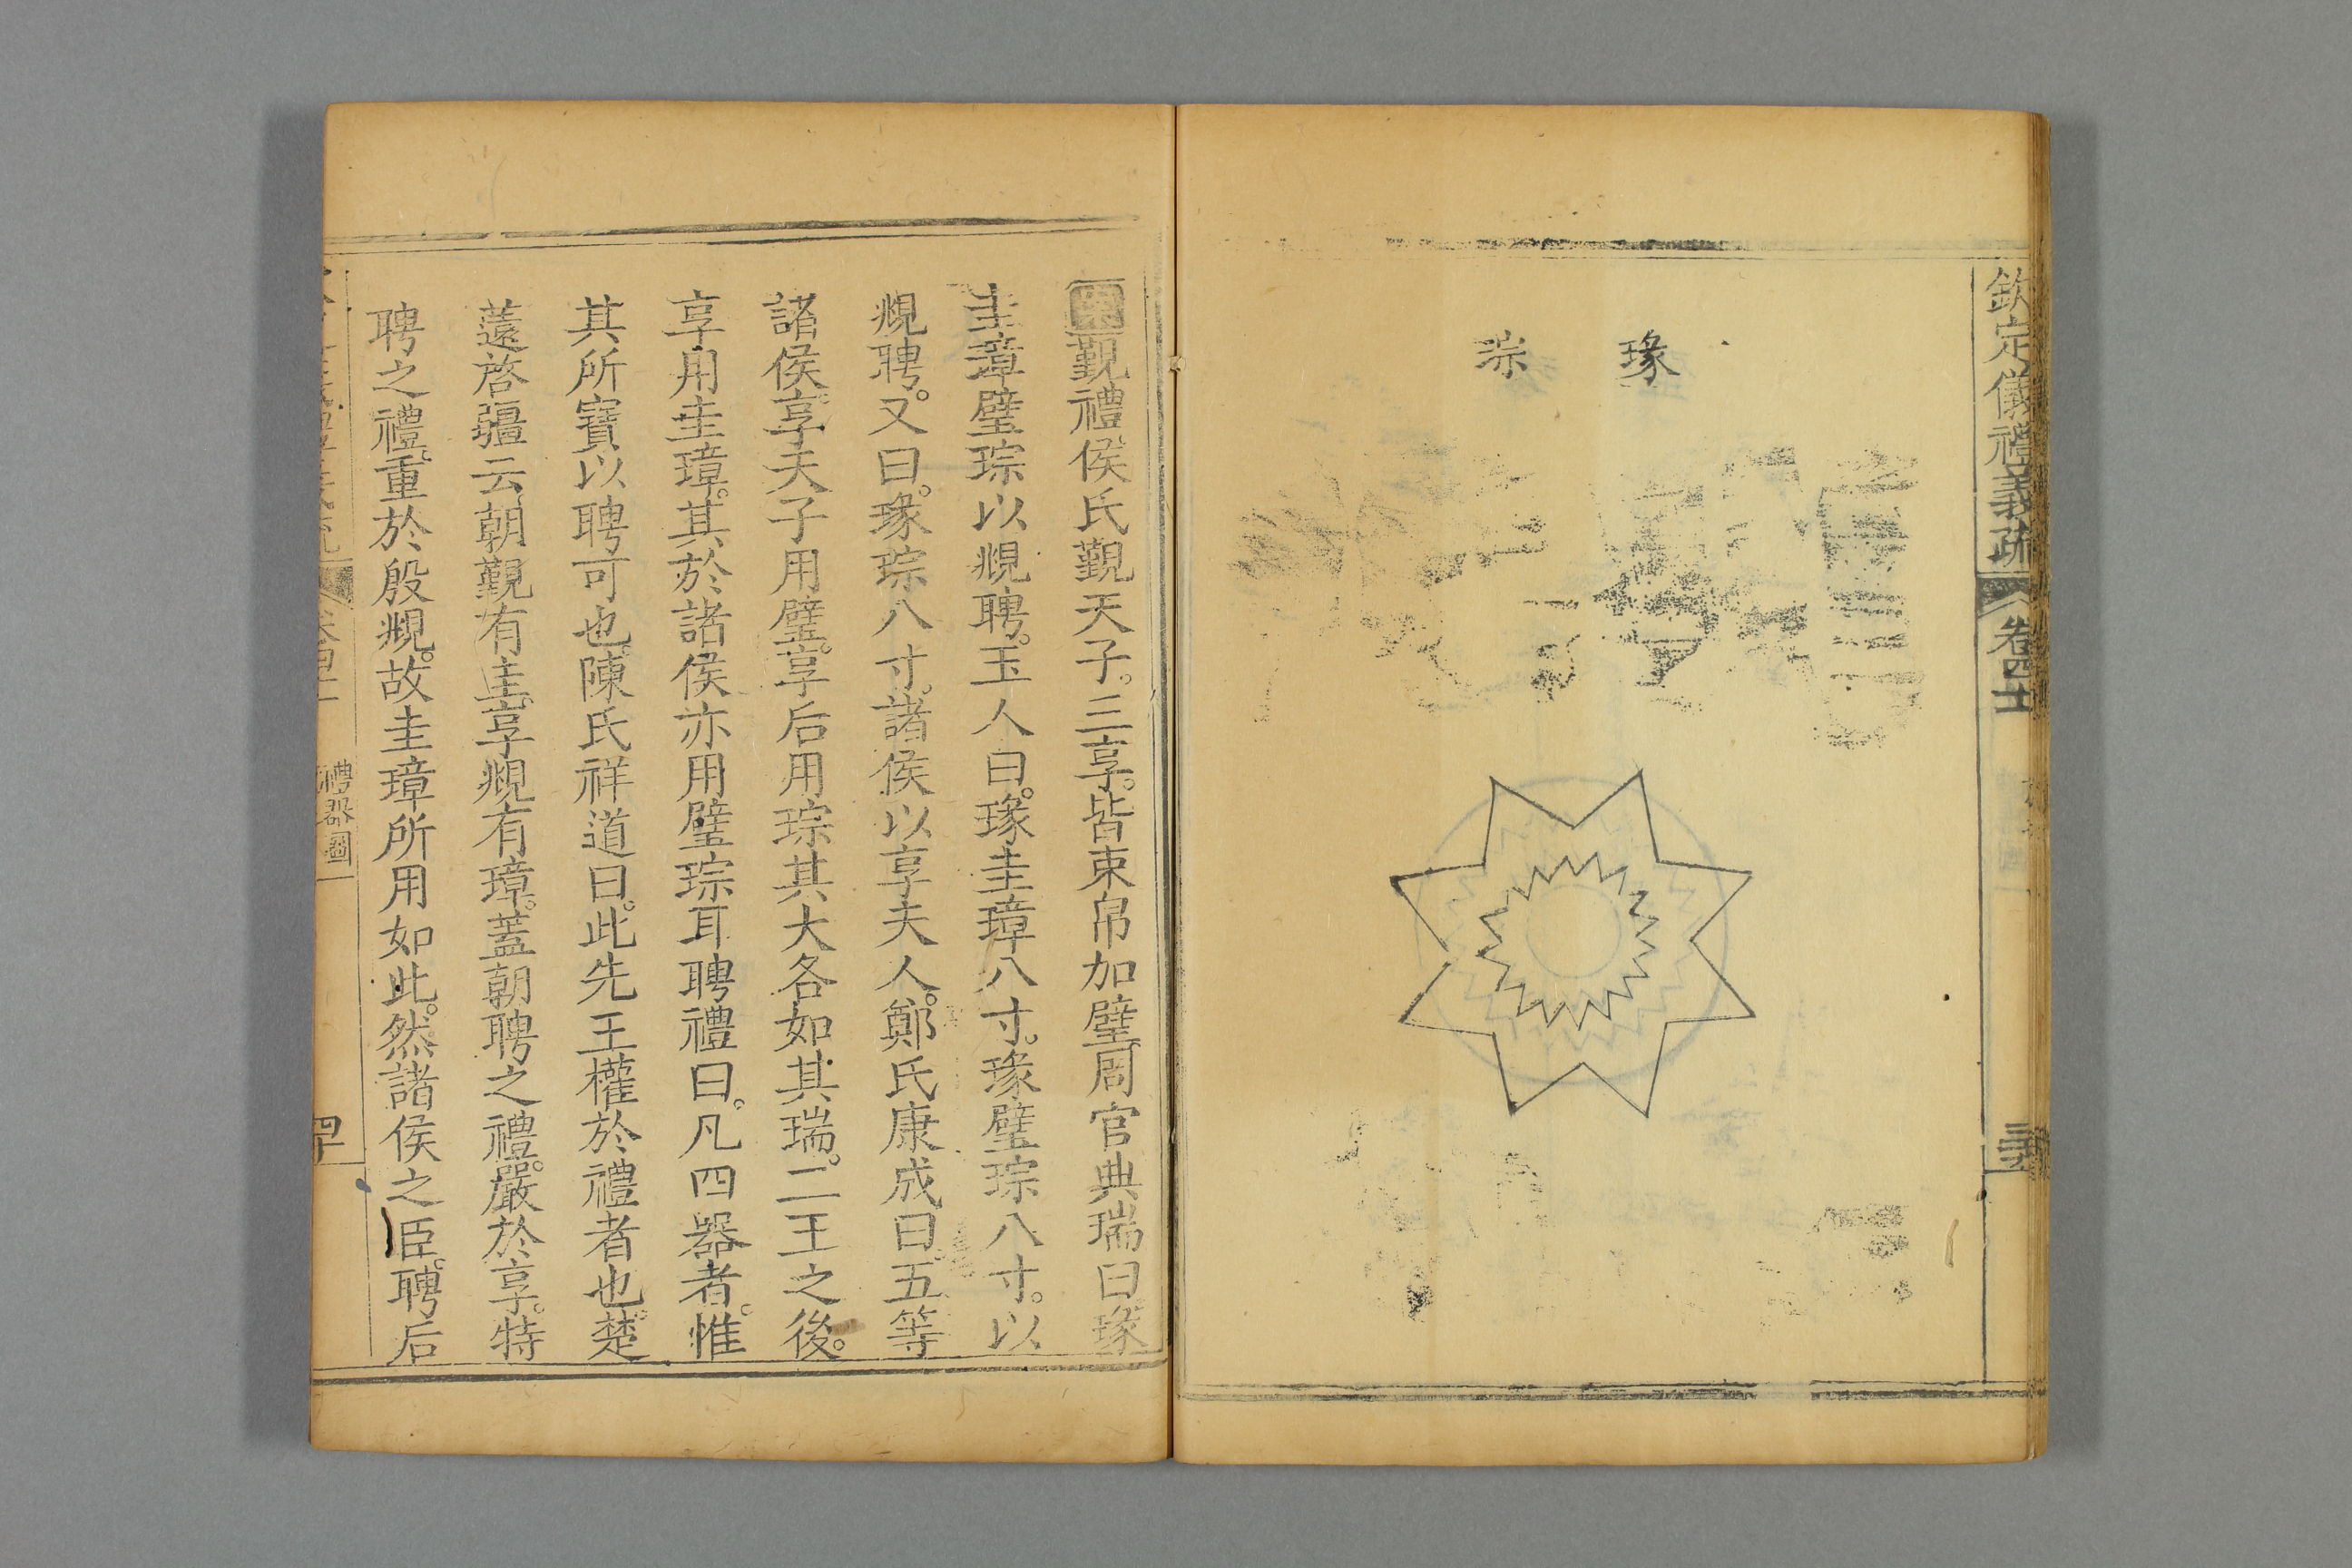 欽定儀禮義疏 卷四十
瑑 琮
案覲禮侯氏覲天子。三享。皆束帛加璧。周官典瑞曰瑑
圭璋璧琮以覜聘。玉人曰。瑑圭璋八寸。瑑璧琮八寸。以
覜聘。又曰。瑑琮八寸。諸侯以享夫人。鄭氏康成曰。五等
諸侯。享天子用璧。享后用琮。其大各如其瑞。二王之後。
享用圭璋。其於諸侯亦用璧琮耳。聘禮曰。凡四器者。惟
其所寶以聘可也。陳氏祥道曰。此先王權於禮者也。楚
薳啓疆云。朝覲有圭。享覜有璋。蓋朝聘之禮。嚴於享。特
聘之禮。重於殷覜。故圭璋所用如此。然諸侯之臣。聘后
禮器圖